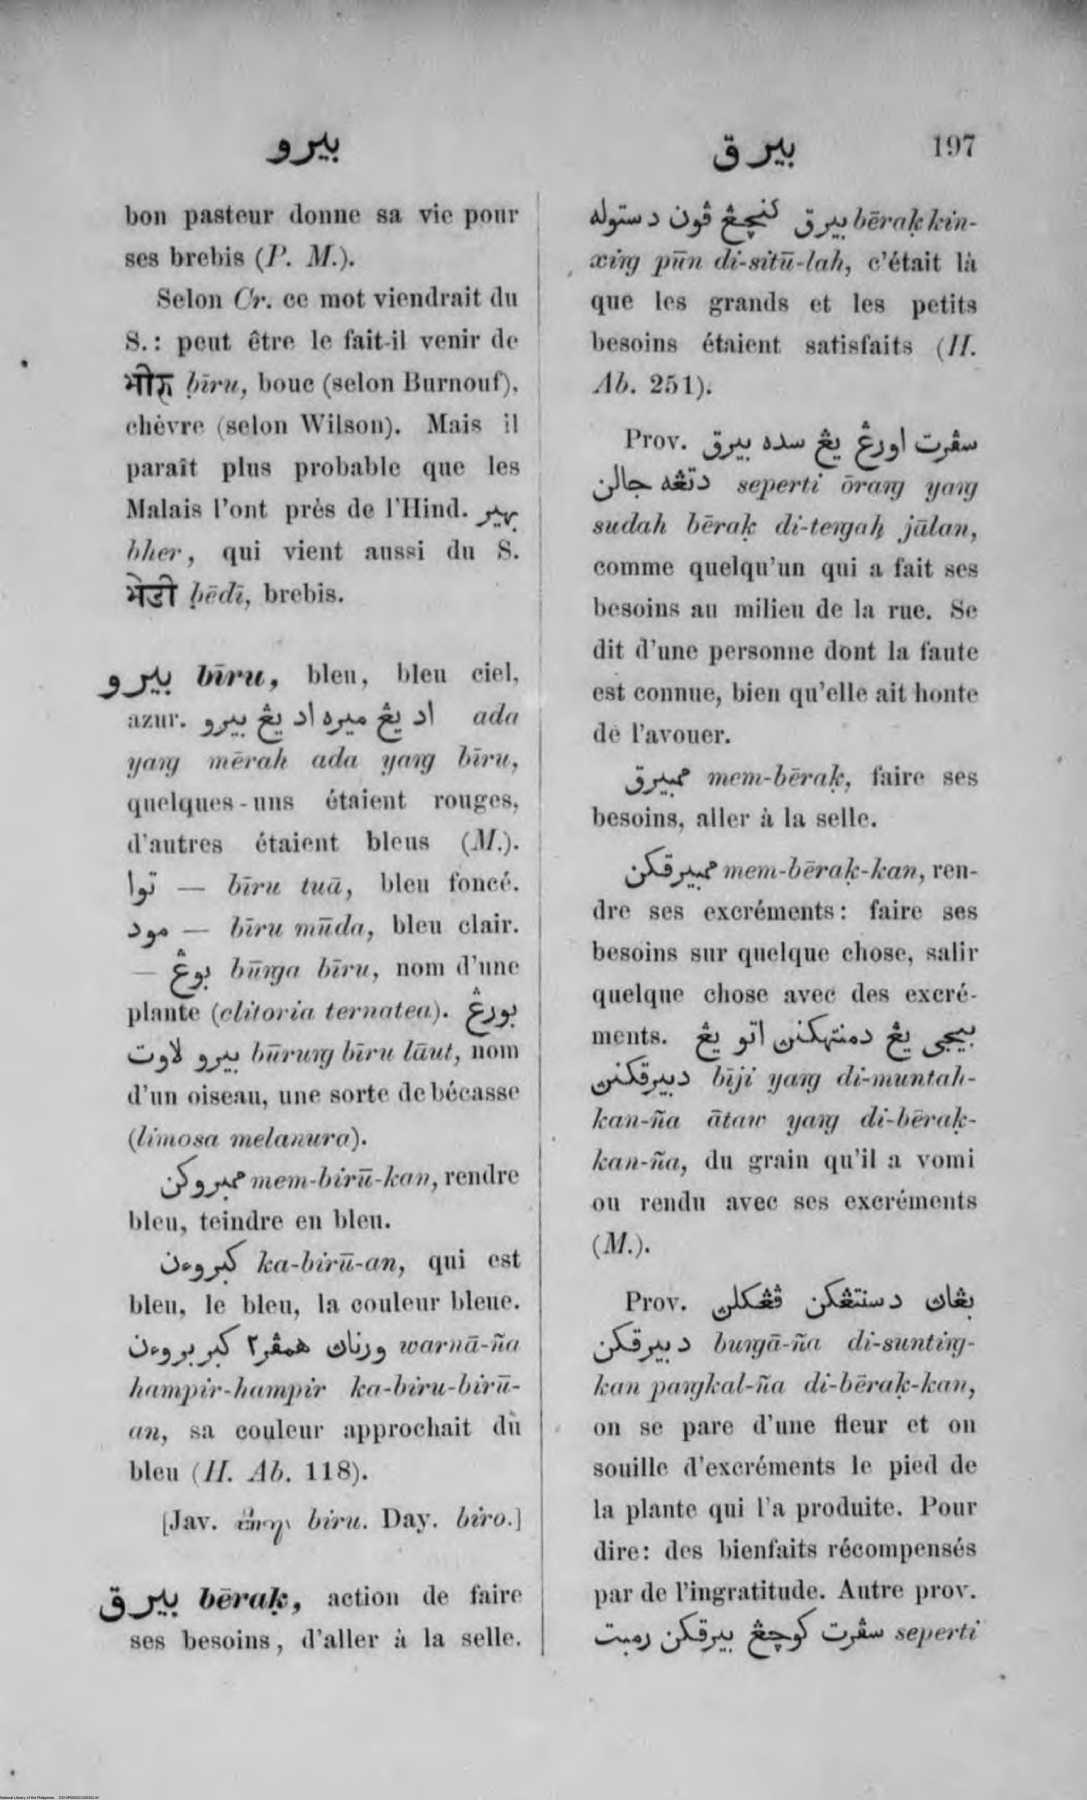 بيرو
بيرق 197
bon pasteur donne sa vie pour
ses brebis (P. M.).
Selon Cr. ce mot viendrait du
S.: peut être le fait-il venir de
भीरु ḅīru, bouc (selon Burnouf),
chèvre (selon Wilson). Mais il
paraît plus probable que les
Malais l'ont près de l'Hind. بهير
bher, qui vient aussi du S.
भेडी ḅēdī, brebis.
بيرو bīru, bleu, bleu ciel,
azur. اد يڠ ميره اد يڠ بيرو ada
yaṅg mērah ada yaṅg bīru,
quelques-uns étaient rouges,
d'autres étaient bleus (M.).
توا — bīru tuā, bleu foncé.
مود — bīru mūda, bleu clair.
— بوڠ būṅga bīru, nom d'une
plante (clitoria ternatea). بورڠ
بيرو لاوت būruṅg bīru lāut, nom
d'un oiseau, une sorte de bécasse
(limosa melanura).
ممبروكن mem-birū-kan, rendre
bleu, teindre en bleu.
كبروءن ka-birū-an, qui est
bleu, le bleu, la couleur bleue.
ورناڽ همڤر٢ كبربروءن warnā-ña
hampir-hampir ka-biru-birū-
an, sa couleur approchait du
bleu (H. Ab. 118).
[Jav. biru. Day. biro.]
بيرق bēraḳ, action de faire
ses besoins, d'aller à la selle.
بيرق كنچڠ ڤون دستوله bēraḳ kin-
xiṅg pūn di-sitū-lah, c'était là
que les grands et les petits
besoins étaient satisfaits (H.
Ab. 251).
Prov. سڤرت اورڠ يڠ سده بيرق
دتڠه جالن seperti ōraṅg yaṅg
sudah bēraḳ di-teṅgaḥ jālan,
comme quelqu'un qui a fait ses
besoins au milieu de la rue. Se
dit d'une personne dont la faute
est connue, bien qu'elle ait honte
de l'avouer.
ممبيرق mem-bēraḳ, faire ses
besoins, aller à la selle.
ممبيرقكن mem-bēraḳ-kan, ren-
dre ses excréments: faire ses
besoins sur quelque chose, salir
quelque chose avec des excré-
ments. بيجي يڠ دمنتهكنڽ اتو يڠ
دبيرقكنڽ bīji yaṅg di-muntah-
kan-ña ātaw yaṅg di-bēraḳ-
kan-ña, du grain qu'il a vomi
ou rendu avec ses excréments
(M.).
Prov. بڠاڽ دسنتڠكن ڤڠكلڽ
دبيرقكن buṅgā-ña di-suntiṅg-
kan paṅgkal-ña di-bēraḳ-kan,
on se pare d'une fleur et on
souille d'excréments le pied de
la plante qui l'a produite. Pour
dire: des bienfaits récompensés
par de l'ingratitude. Autre prov.
سڤرت كوچڠ بيرقكن رمبت seperti